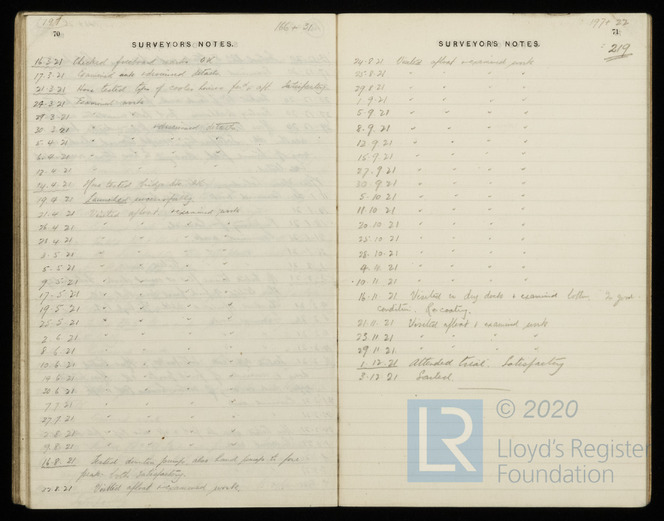 70
SURVEYORS NOTES.
16.3.21 Checked freeboard marks
17.3.21 Examined and details
21.3.21 Hose tested tops of houses aft. Satisfactory
24.3.21 Examined work
29.3.21 " "
30.3.21 " examined details
5.4.21 " " " "
6.4.21 " " " "
12.4.21 " "
14.4.21 Hose tested bridge
19.4.21 Launched successfully
21.4.21 Visited afloat & examined work
26.4.21 " " " "
28.4.21 " " " "
2.5.21 " " " "
5.5.21 " " " "
9.5.21 " " " "
17.5.21 " " " "
19.5.21 " " " "
25.5.21 " " " "
2.6.21 " " " "
8.6.21 " " " "
10.6.21 " " " "
14.6.21 " " " "
20.6.21 " " " "
7.7.21 " " " "
27.7.21 " " " "
2.8.21 " " " "
9.8.21 " " " "
16.8.21 Tested donkey pumps, also hand pumps to fore
peak both satisfactory.
22.8.21 Visited afloat & examined work
197+ 22
71
SURVEYORS NOTES.
219
24.8.21 Visited afloat & examined work
25.8.21 " " " "
29.8.21 " " " "
1.9.21 " " " "
5.9.21 " " " "
8.9.21 " " " "
12.9.21 " " " "
15.9.21 " " " "
27.9.21 " " " "
5.10.21 " " " "
11.10.21 " " " "
20.10.21 " " " "
25.10.21 " " " "
28.10.21 " " " "
4.11.21 " " " "
10.11.21 " " " "
16.11.21 Vessel in dry dock & examined bottom. In good
condition. Recoating.
21.11.21 Visited afloat & examined work
23.11.21 " " " "
29.11.21 " " " "
1.12.21 Attended trial. Satisfactory
3.12.21 Sailed
LR
© 2020
Lloyd's Register
Foundation